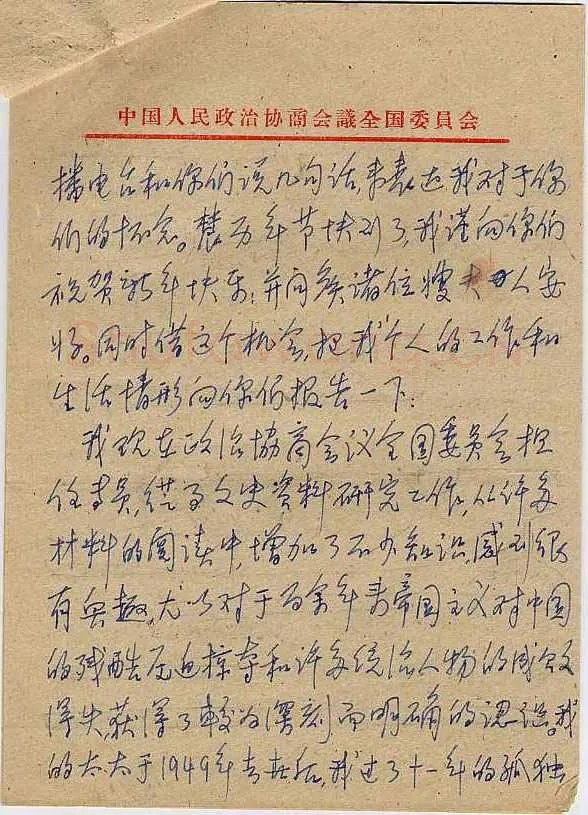 中国人民政治协商会議全国委員会
播电台和你们说几句话,来表达我对于你
们的怀念。农历年节快到了,我谨向你们
祝贺新年快乐!并问候诸位嫂夫人安
好。同时借这个机会,把我个人的工作和
生活情形向你们报告一下:
我现在政治协商会议全国委员会担
任专员,从事文史资料研究工作,从许多
材料的阅读中,增加了不少知识,感到很
有兴趣,尤以对于百余年来帝国主义对中国
的残酷压迫掠夺和许多统治人物的成败
得失,获得了较为深刻而明确的認识。我
的太太于1949年去世后,我过了十一年的孤独